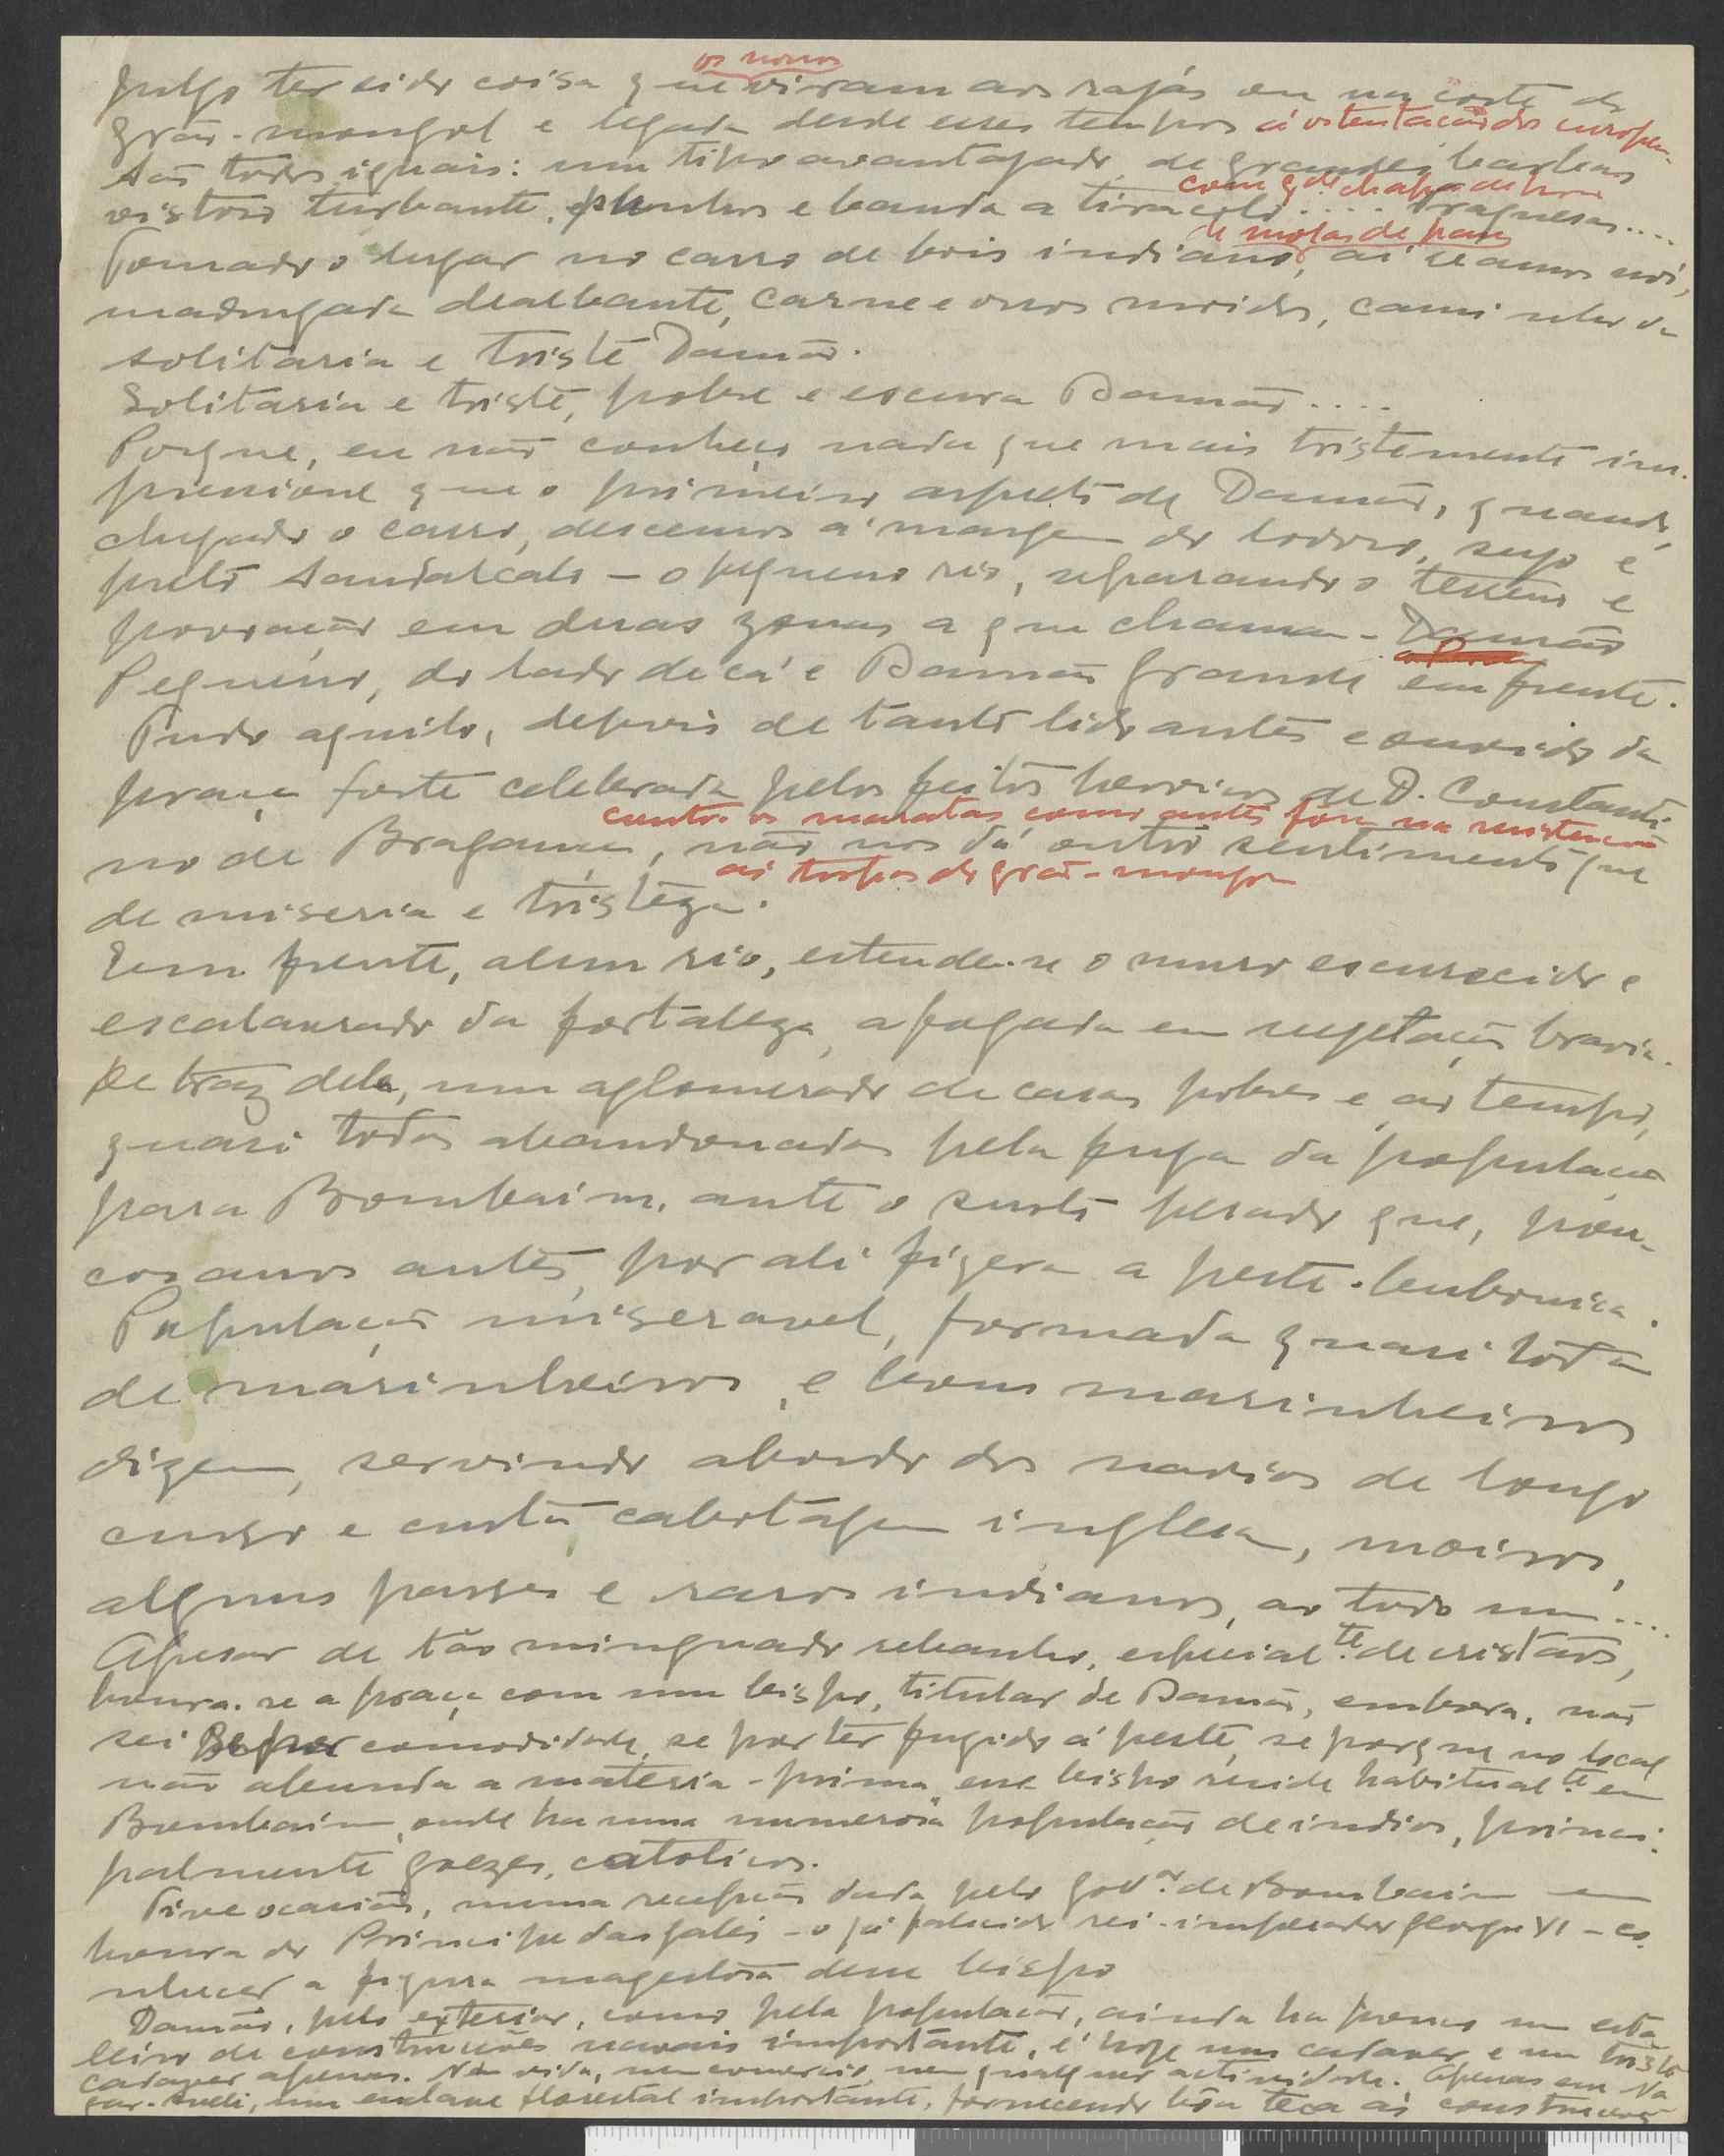 julgo ter sido coisa que os nossos viram aos rajás ou na côrte do
grão-mongol e legada desde esses tempos á ostentação dos europeus.
São todos iguais: um tipo avantajado, de grandes barbas
vistoso turbante, e banda a tiracolo com gde. chapa de.... fraquesas....
Tomado o lugar no carro de bois indiano, de molas de pau, aí vamos nós,
madrugada dealbante, carne e ossos moidos, caminho da
solitaria e triste Damão.
Solitaria e triste, pobre e escura Damão....
Porque, eu não conheço nada que mais tristemente im-
pressione que o primeiro aspecto de Damão, quando,
chegado o carro, descemos á margem do lodoso, sujo e
preto Sandalcalo - o pequeno rio, separando o terreno e
povoação em duas zonas a que chamam - Damão
Pequeno, do lado de cá e Damão Grande em frente.
Tudo aquilo, depois de tanto lido antes e ouvido da
praça forte celebrada pelos feitos heroicos de D. Constanti-
no de Bragança, contra os maratas como antes fôra na resistencia
ás tropas do grão-mongol, não nos dá outro sentimento que
de miseria e tristeza.
Em frente, alem rio, estende-se o muro escurecido e
escalavrado da fortaleza, afogada em vegetação bravia.
De traz dela, um aglomerado de casas pobres e, ao tempo,
quasi todas abandonadas pela fuga da população
para Bombaim, ante o surto pesado que, pou-
cos anos antes, por ali fizera a peste-bubonica.
População miseravel, formada quasi toda
de marinheiros, e bons marinheiros
dizem, servindo abordo dos navios de longo
curso e curta cabotagem inglesa, moiros,
alguns parses e raros indianos, ao todo uns....
Apesar de tão minguado rebanho, especialte. de cristãos,
honra-se a praça com um bispo, titular de Damão, embora, não
sei se por comodidade, se por ter fugido á peste, se porque no local
não abunda a materia-prima, esse bispo reside habitualte. em
Bombaim, onde ha uma numerosa população de indios, princi-
palmente goezes, catolicos.
Tive ocasião, numa recepção dada pelo Govor. de Bombaim em
honra do Principe das Gales - o já falecido rei-imperador George VI - co-
nhecer a figura magestosa desse bispo
Damão, pelo exterior, como pela população, ainda ha pouco um esta-
leiro de construções navais importante, é hoje um cadaver e um triste
cadaver apenas. Nem vida, nem comercio, nem qualquer actividade. Apenas em Na-
gar-Aveli, um enclave florestal importante, fornecendo bôa teca ás construções